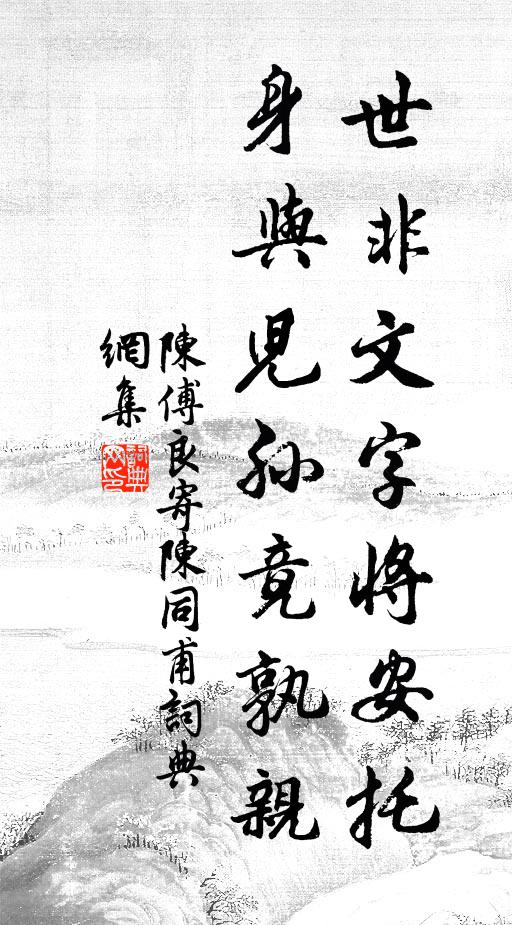 世非文字将安托
身與兒孫竟孰親
陳傅良寄陳同甫詞典
網集
詞典網印